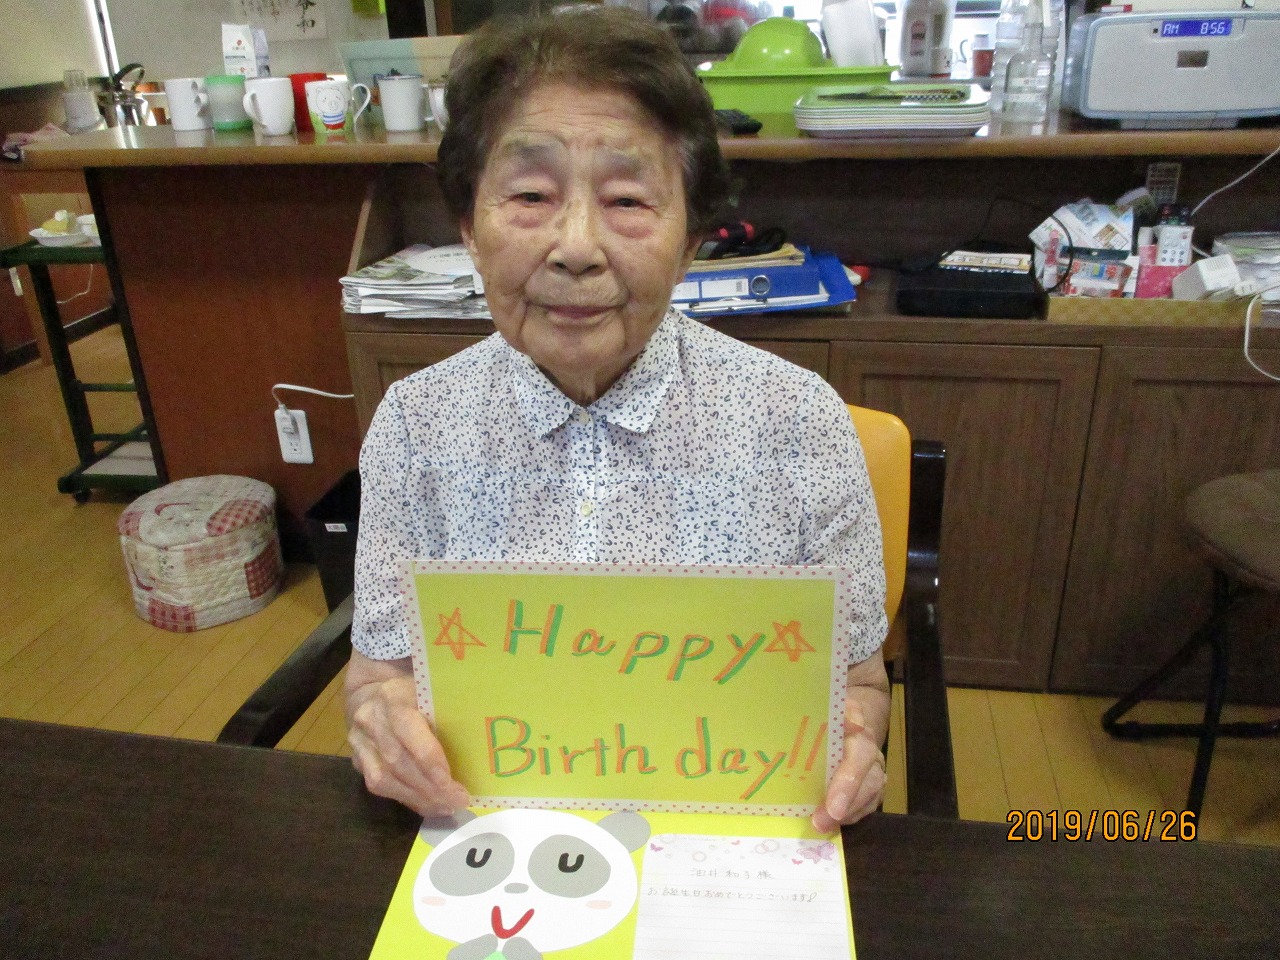 令和
AM 856
☆Happy☆
Birthday!!
様
お誕生日おめでとうございます♪
2019/06/26